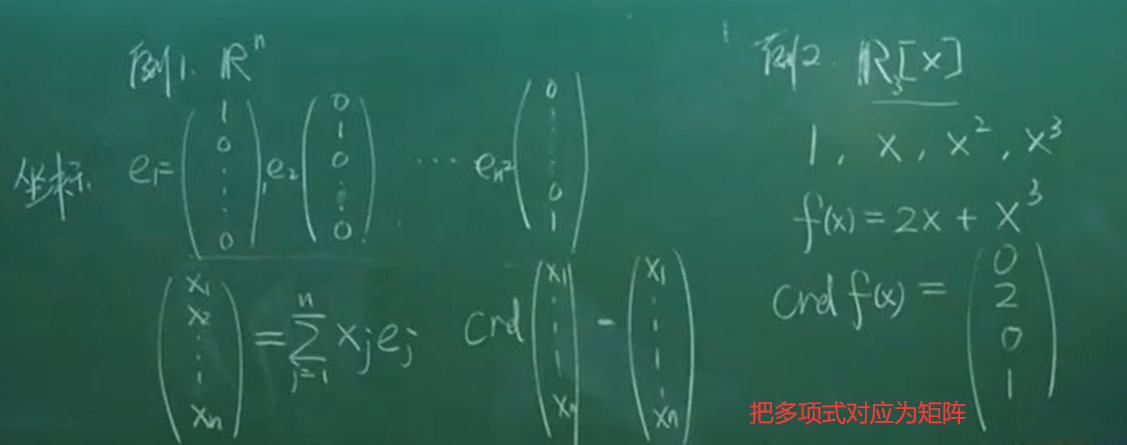 例1. ℝⁿ
坐标. e₁=(1 0 ⋮ 0), e₂(0 1 0 ⋮ 0) ⋯ eₙ=(0 ⋮ 0 1)
(x₁ x₂ ⋮ xₙ) = ∑ⱼ₌₁ⁿ xⱼeⱼ crd(x₁ ⋮ xₙ) = (x₁ ⋮ xₙ)
例2. ℝ₃[x]
1, x, x², x³
f(x) = 2x + x³
crd f(x) = (0 2 0 1)
把多项式对应为矩阵